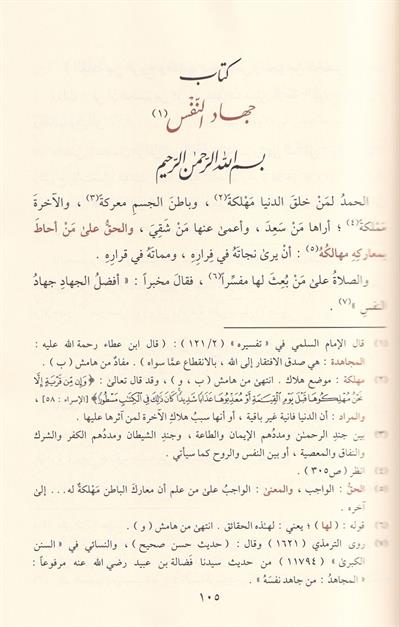 كتاب
جهاد النّفس (١)
بسم الله الرّحمٰن الرّحيم
الحمدُ لمَنْ خلقَ الدنيا مَهْلكةً(٢) ، وباطنَ الجسمِ معركةً(٣) ، والآخرةَ
مَمْلكةً(٤) ؛ أراها مَنْ سَعِدَ ، وأعمىٰ عنها مَنْ شَقِيَ ، والحقُّ علىٰ مَنْ أحاطَ
بمعاركِهِ مهالكُهُ(٥) : أن يرىٰ نجاتَهُ في فِرارِهِ ، ومماتَهُ في قرارِهِ .
والصلاةُ علىٰ مَنْ بُعِثَ لها مفسِّراً(٦) ، فقالَ مخبراً : « أفضلُ الجهادِ جهادُ
النفسِ »(٧) .
(١) قال الإمام السلمي في « تفسيره » (١٢١/٢) : ( قال ابن عطاء رحمة الله عليه :
المجاهدة : هي صدق الافتقار إلى الله ، بالانقطاع عمَّا سواه ) . مفادٌ من هامش ( ب ) .
(٢) مهلكة : موضع هلاك . انتهىٰ من هامش ( ب ، و ) ، وقد قال تعالىٰ : ﴿ وَإِن مِّن قَرْيَةٍ إِلَّا
نَحْنُ مُهْلِكُوهَا قَبْلَ يَوْمِ الْقِيَٰمَةِ أَوْ مُعَذِّبُوهَا عَذَابًا شَدِيدًا كَانَ ذَٰلِكَ فِي الْكِتَٰبِ مَسْطُورًا ﴾ [الإسراء : ٥٨] ،
والمراد : أن الدنيا فانية غير باقية ، أو أنها سببُ هلاكِ الآخرة لمن آثرها عليها .
(٣) بين جندِ الرحمٰن ومددُهم الإيمان والطاعة ، وجندِ الشيطان ومددُهم الكفر والشرك
والنفاق والمعصية ، أو بين النفس والروح كما سيأتي .
(٤) انظر (ص٣٠٥) .
(٥) الحقُّ : الواجب ، والمعنىٰ : الواجبُ علىٰ من علم أن معاركَ الباطن مَهْلكةٌ له... إلىٰ
آخره .
(٦) قوله : ( لها ) ؛ يعني : لهٰذه الحقائق . انتهىٰ من هامش ( و ) .
(٧) روى الترمذي (١٦٢١) وقال : ( حديث حسن صحيح ) ، والنسائي في « السنن
الكبرىٰ » (١١٧٩٤) من حديث سيدنا فَضالة بن عبيد رضي الله عنه مرفوعاً :
« المجاهدُ : من جاهد نفسَهُ » .
١٠٥